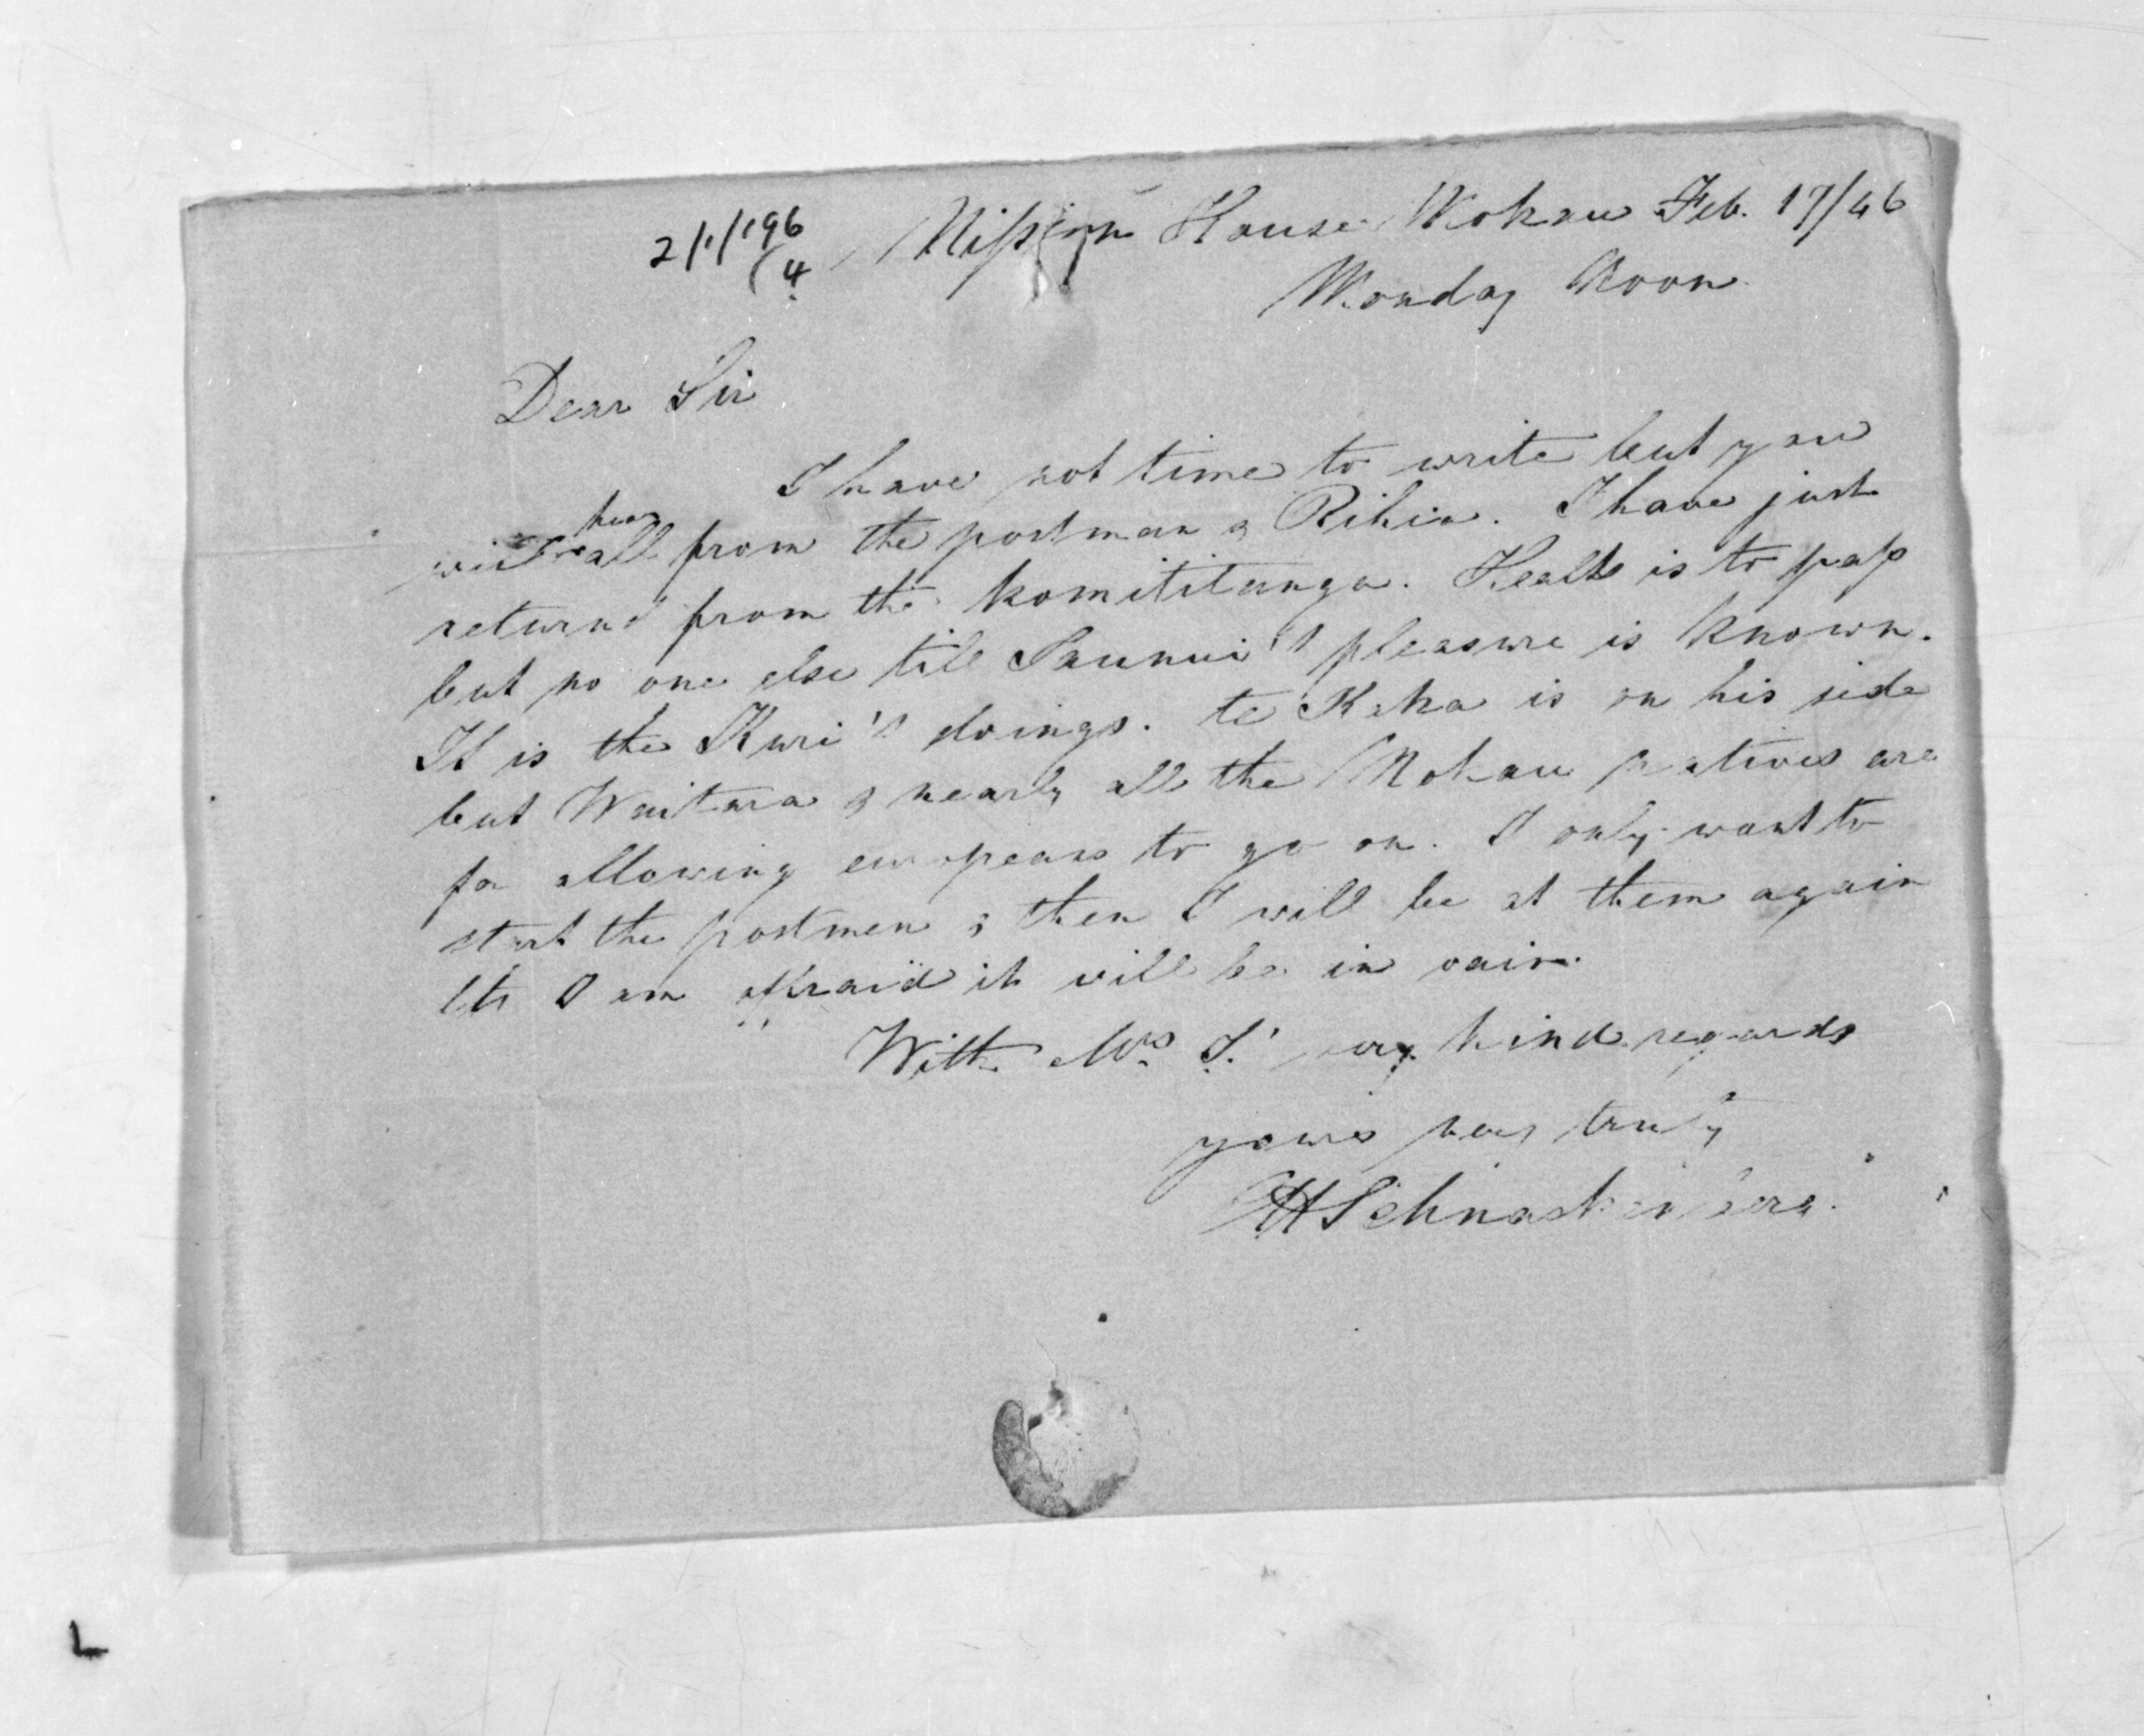 2/1/196
/4
Mission House Mokau Feb. 17/46
Monday Noon
Dear Sir
I have not time to write but you
hear
will all from the postman & Rihia. I have just
returnd from the komititanga. Health is to pass
but no one else till Taunui's pleasure is known.
It is the Kuri's doings. te Kaka is on his side
but Waitara & nearly all the Mokau natives are
for allowing europeans to go on. I only want to
start the postmen & then I will be at them again
tho I am afraid it will be in vain.
With Mrs S.' very kind regards
yours very truly
CH Schnackenberg.
L